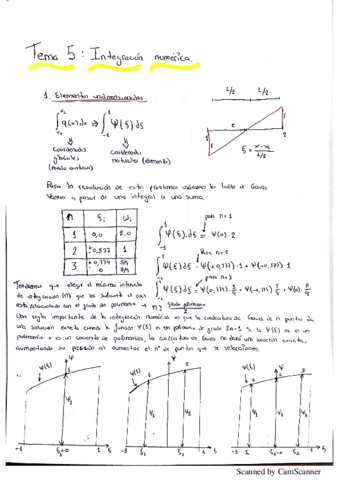 Tema 5: Integración numérica.
L/2 L/2
1. Elementos unidimensionales
∫ g(x) dx ⇒ ∫ φ(ξ) dξ
x₁ x₂ -1 1
ξ = x - xc / L/2
Coordenadas Coordenadas
globales naturales (elemento)
Para la resolución de esta problemas usaremos la tabla de Gauss
Vamos a pasar de una integral a una suma.
n ξi ωi
1 0,0 2,0
2 ±0,577 1
3 ±0,774 5/9
0 8/9
para n=1
∫ φ(ξ) dξ = φ(0)·2
Para n=2
∫ φ(ξ) dξ = φ(+0,577)·1 + φ(-0,577)·1
para n=3
∫ φ(ξ) dξ = φ(0,774)·5/9 + φ(-0,774)·5/9 + φ(0)·8/9
Tendremos que elegir el mínimo
de integración (n) que
está relacionado con el grado del polinomio → n ≥
Una regla importante de la integración numérica es que la cuadratura de Gauss de n puntos da
una solución exacta cuando la función φ(ξ) es un polinomio de grado 2n-1. Si la φ(ξ) no es un
polinomio o es un cociente de polinomios, la cuadratura de Gauss no dará una solución exacta,
aumentando su precisión al aumentar el nº de puntos que se seleccionen.
φ φ φ
φ(ξ) φ(ξ) φ(ξ)
-1 ξ₁=0 1 ξ -1 ξ₁ ξ₂ 1 ξ -1 ξ₁ ξ₂=0 ξ₃ 1 ξ
Scanned by CamScanner